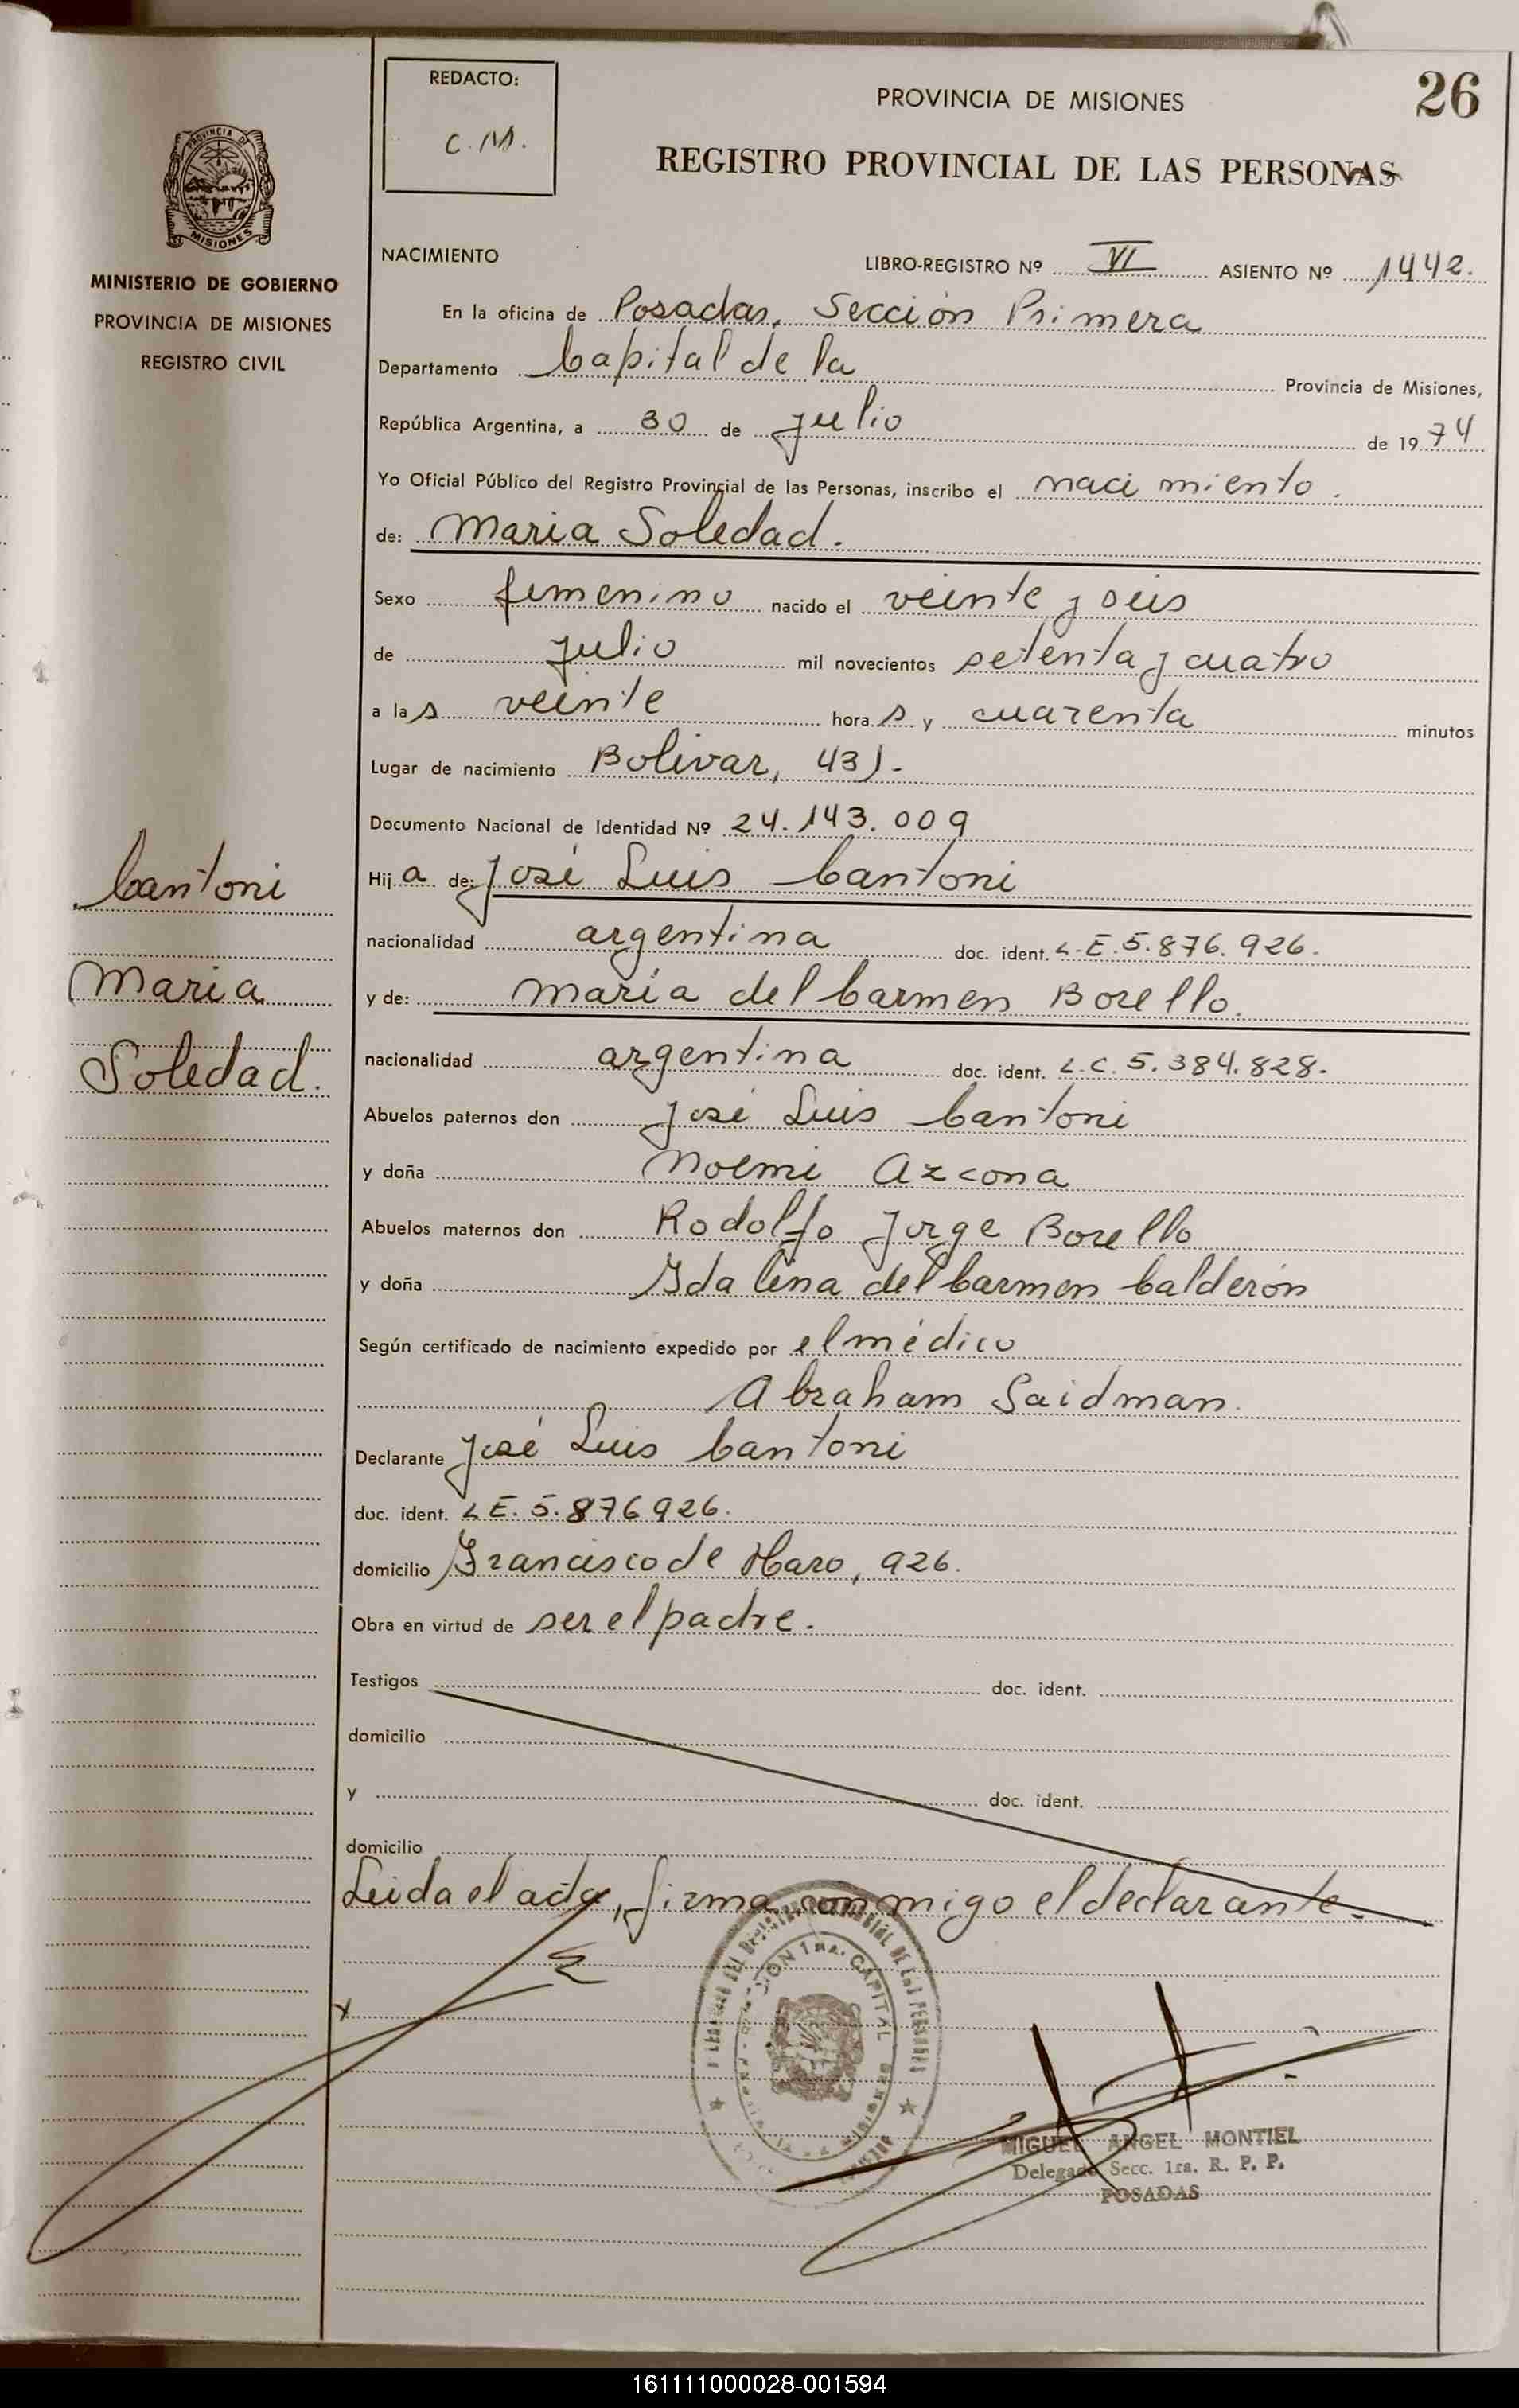 REDACTO:
C. M.
PROVINCIA DE MISIONES
26
REGISTRO PROVINCIAL DE LAS PERSONAS
PROVINCIA DE
MISIONES
MINISTERIO DE GOBIERNO
PROVINCIA DE MISIONES
REGISTRO CIVIL
NACIMIENTO
LIBRO-REGISTRO Nº VI ASIENTO Nº 1442.
En la oficina de Posadas, Sección Primera
Departamento Capital de la Provincia de Misiones,
República Argentina, a 30 de julio de 1974
Yo Oficial Público del Registro Provincial de las Personas, inscribo el nacimiento.
de: Maria Soledad.
Sexo femenino nacido el veinte y seis
de julio mil novecientos setenta y cuatro
a las veinte horas y cuarenta minutos
Lugar de nacimiento Bolivar, 431.-
Documento Nacional de Identidad Nº 24.143.009
Hija de: José Luis Cantoni
nacionalidad argentina doc. ident. L.E. 5.876.926.
y de: María del Carmen Borello.
nacionalidad argentina doc. ident. L.C. 5.384.828.
Abuelos paternos don José Luis Cantoni
y doña Noemi Azcona
Abuelos maternos don Rodolfo Jorge Borello
y doña Idalina del Carmen Calderón
Según certificado de nacimiento expedido por el médico
Abraham Saidman.
Declarante José Luis Cantoni
doc. ident. L E. 5.876926.
domicilio Francisco de Haro, 926.
Obra en virtud de ser el padre.
Testigos doc. ident.
domicilio
y doc. ident.
domicilio
Leida el acta, firma conmigo el declarante.-
Cantoni
Maria
Soledad.
MIGUEL ANGEL MONTIEL
Delegado Secc. 1ra. R. P. P.
POSADAS
161111000028-001594